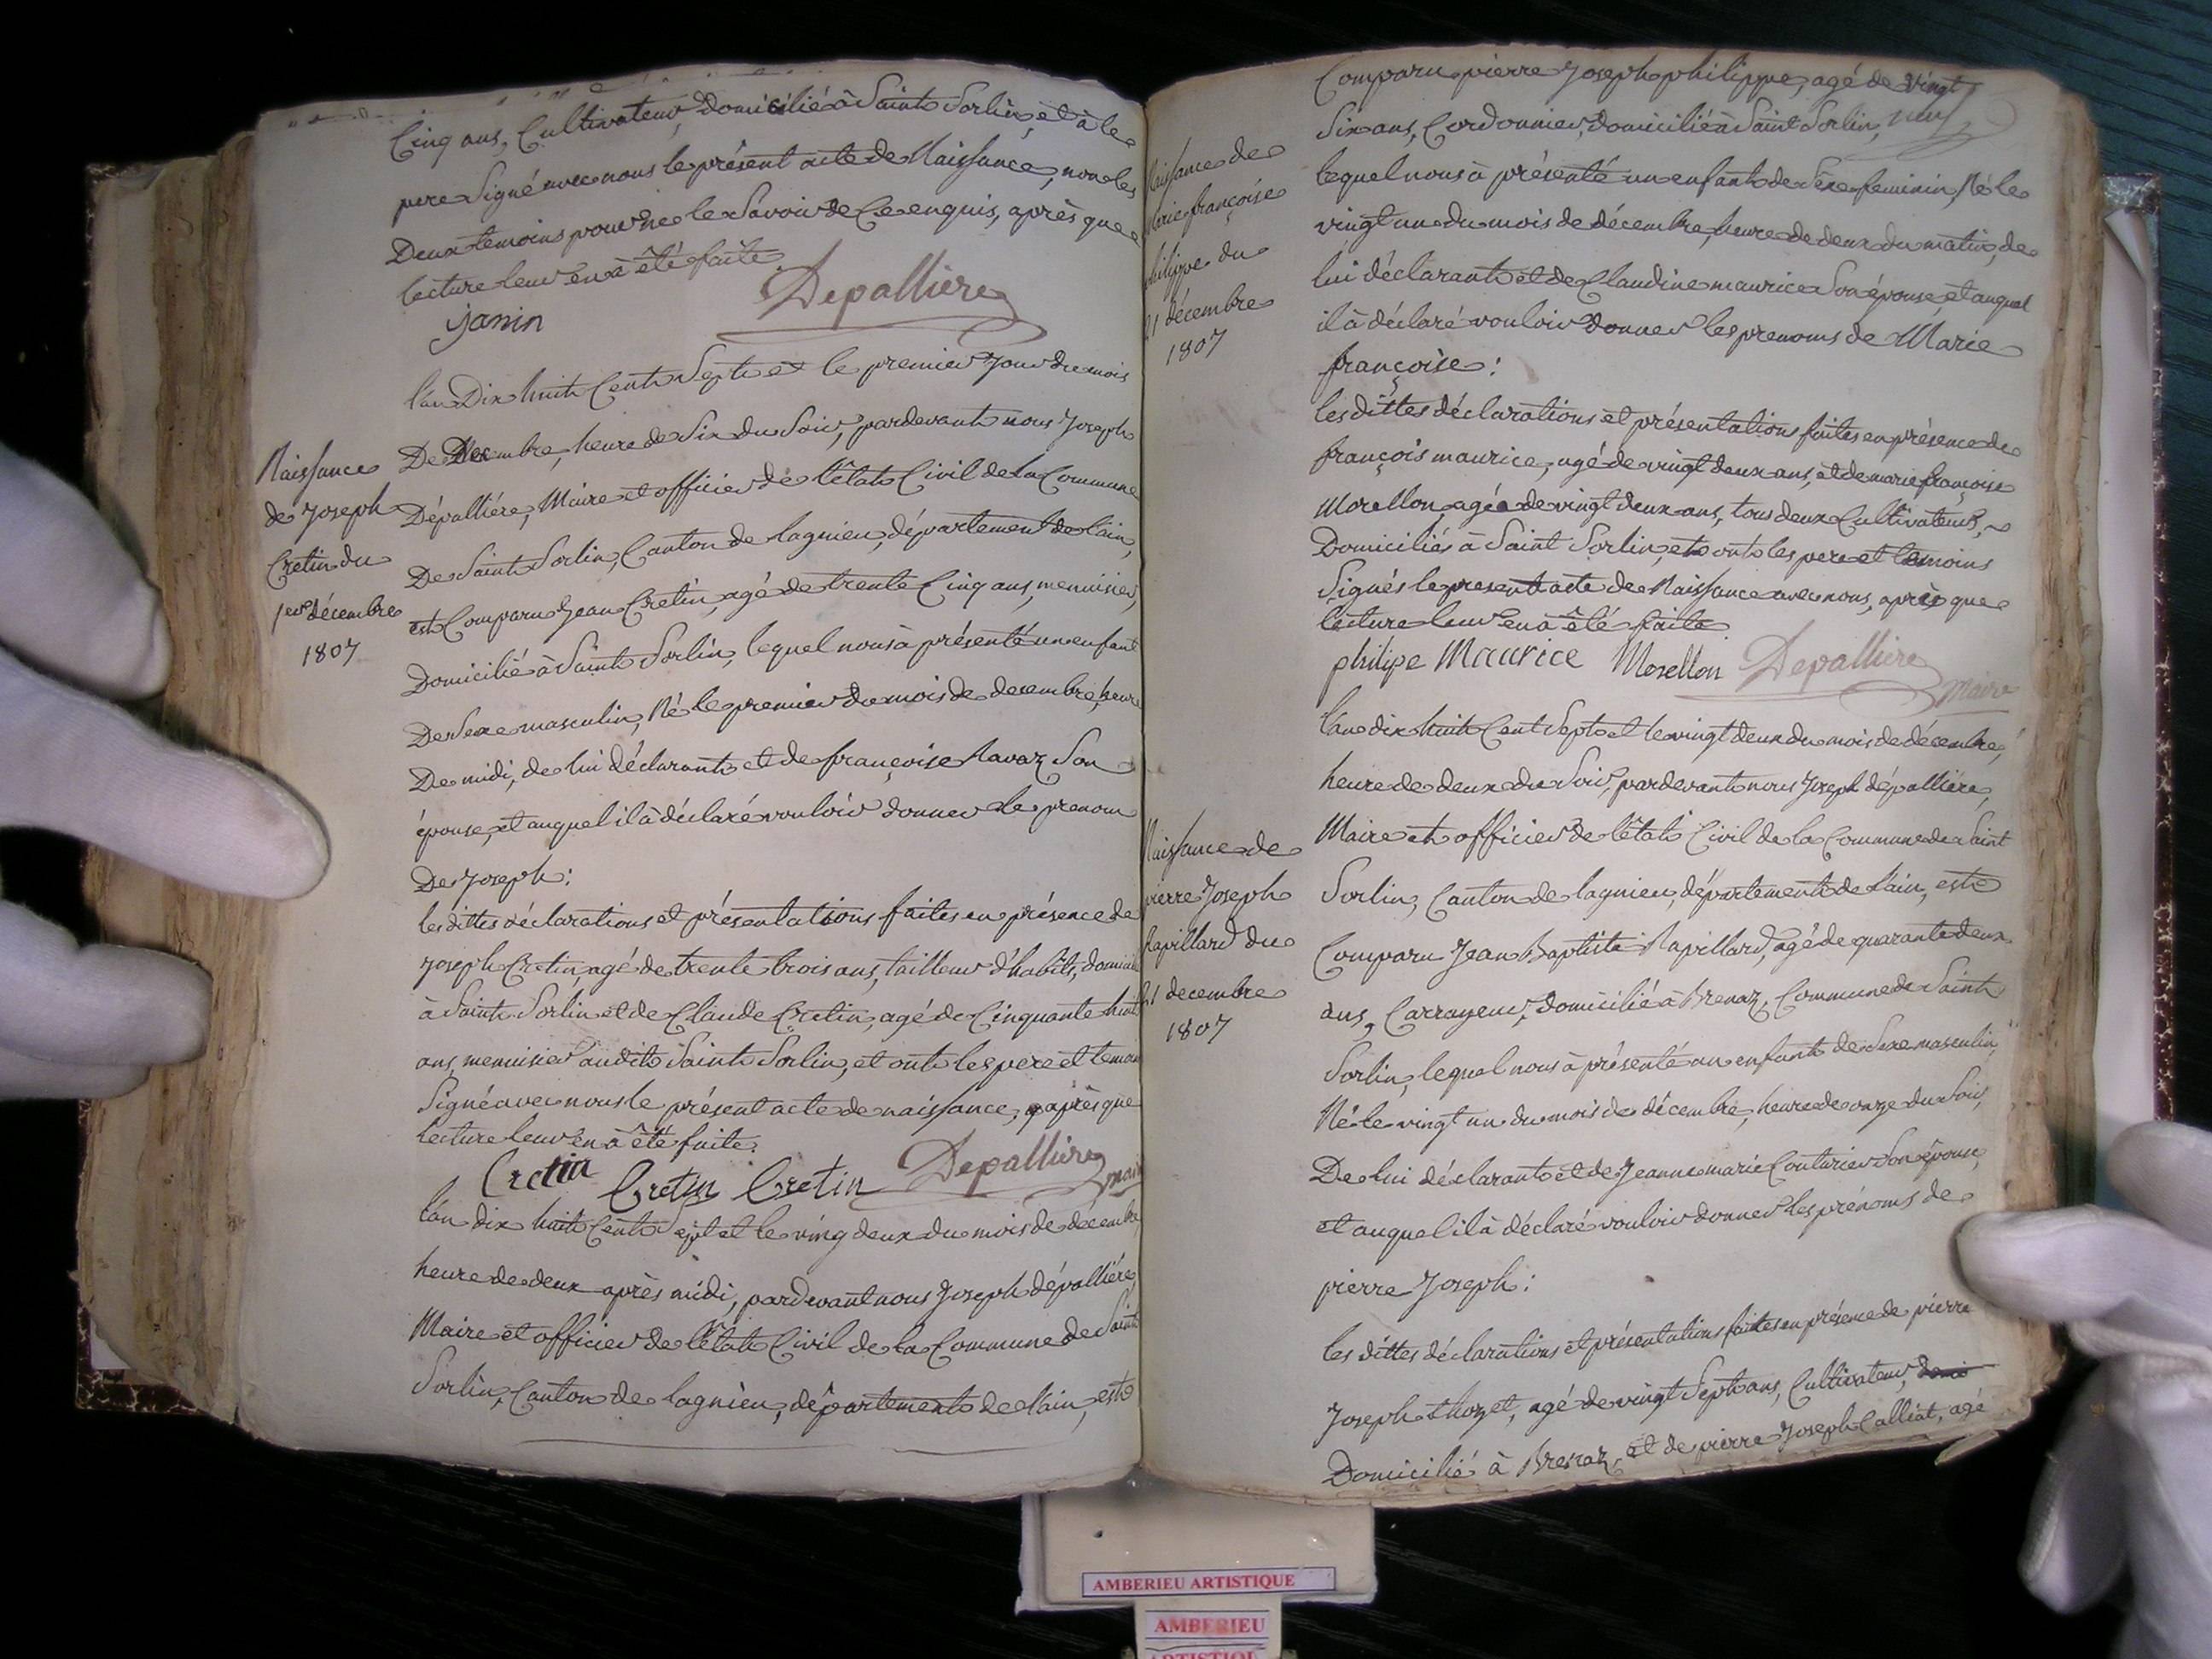 Cinq ans, Cultivateur, domicilié à Saint Sorlin, et à le
pere Signé avec nous le présent acte de Naissance, non les
Deux temoins pour ne le Savoir de Ce enquis, après que
lecture leur en à été faite
janin Depalliere
Naissance
de Joseph
Cretin du
1er décembre
1807
l'an Dix huit Cent Sept et le premier Jour du mois
De Decembre, heure de Six du Soir, pardevant nous Joseph
Dépalliére, Maire et officier de l'êtat Civil de la Commune
De Saint Sorlin, Canton de lagnieu, département de lain,
est Comparu Jean Cretin, agé de trente Cinq ans, menuisier,
Domicilié à Saint Sorlin, lequel nous à présenté un enfant
De Sexe masculin, Né le premier du mois de decembre, heure
De midi, de lui déclarant et de françoise Ravaz Son
épouse, et auquel il à déclaré vouloir donner le prenom
De Joseph:
les dittes déclarations et présentations faites en présence de
Joseph Cretin, agé de trente trois ans, tailleur d'habits, domicilié
à Saint Sorlin et de Claude Cretin, agé de Cinquante huit
ans, menuisier audit Saint Sorlin, et ont les pere et temoins
Signé avec nous le présent acte de naissance, après que
lecture leur en à été faite.
Cretin Cretin Cretin Depalliere maire
l'an dix huit Cent Sept et le ving deux du mois de décembre
heure de deux après midi, pardevant nous Joseph dépalliére,
Maire et officier de l'êtat Civil de la Commune de Saint
Sorlin, Canton de lagnieu, département de lain, est
Naissance de
Marie françoise
philippe du
21 décembre
1807
Comparu pierre Joseph philippe, agé de vingt
Six ans, Cordonnier, domicilié à Saint Sorlin,
lequel nous à présenté un enfant de Sexe feminin, Né le
vingt un du mois de décembre, heure de deux du matin, de
lui déclarant et de Claudine maurice Son épouse, et auquel
il à déclaré vouloir donner les prenoms de Marie
françoise:
les dittes déclarations et présentations faites en présence de
françois maurice, agé de vingt deux ans, et de marie françoise
Morellon, agée de vingt deux ans, tous deux Cultivateurs,
Domiciliés à Saint Sorlin, et ont les pere et temoins
Signés le present acte de Naissance avec nous, après que
lecture leur en à été faite
philipe Maurice Morellon Depalliere maire
Naissance de
pierre Joseph
Rapillard du
21 decembre
1807
l'an dix huit Cent Sept et le vingt deux du mois de décembre,
heure de deux du Soir, pardevant nous Joseph dépalliére,
Maire et officier de l'êtat Civil de la Commune de Saint
Sorlin, Canton de lagnieu, département de lain, est
Comparu Jean Baptiste Rapillard, agé de quarante deux
ans, Carrayeur, domicilié à Brenaz, Commune de Saint
Sorlin, lequel nous à présenté un enfant de Sexe masculin,
Né le vingt un du mois de décembre, heure de onze du Soir,
De lui déclarant et de Jeanne marie Couturier Son épouse,
et auquel il à déclaré vouloir donner les prénoms de
pierre Joseph:
les dittes déclarations et présentations faites en présence de pierre
Joseph thozet, agé de vingt Sept ans, Cultivateur,
Domicilié à Brenaz, et de pierre Joseph Calliat, agé
AMBERIEU ARTISTIQUE
AMBERIEU
ARTISTIQUE